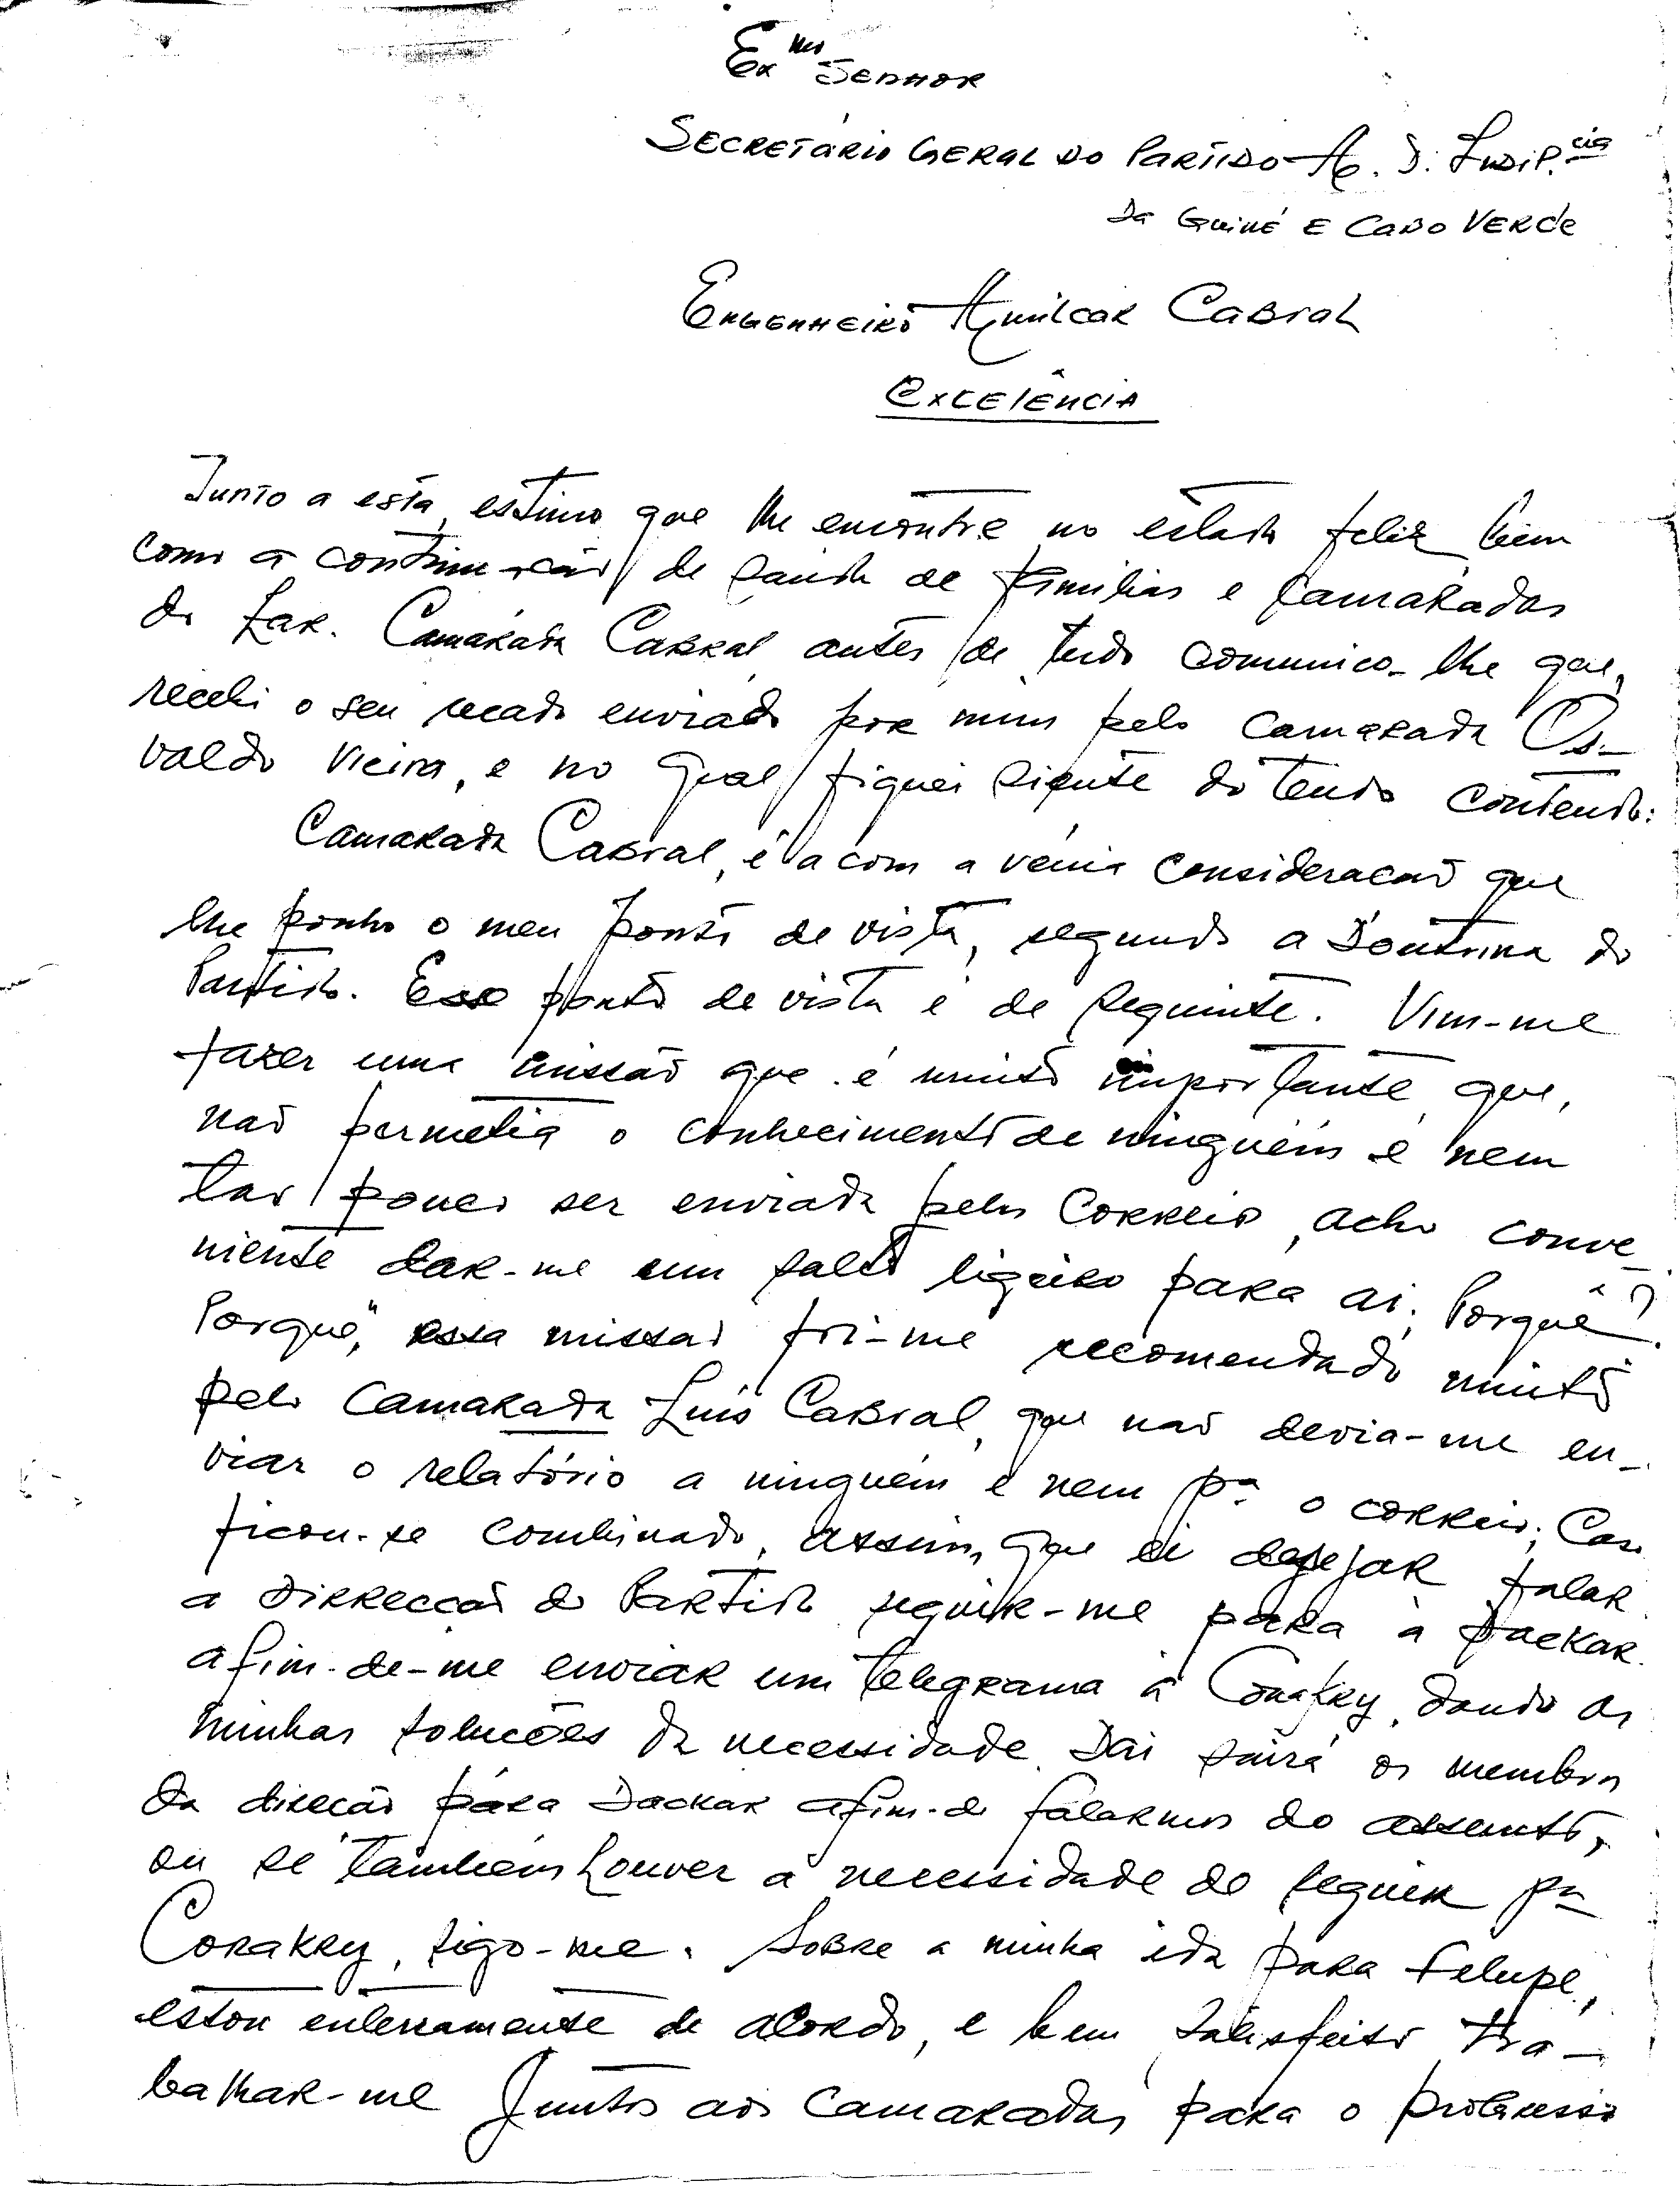 Ex.mo SENHOR
SECRETÁRIO GERAL DO PARTIDO A. D. INDIP.cia
Da Guiné E CABO VERDE
ENGENHEIRO Amilcar CABRAL
EXCELÊNCIA
Junto a esta, estimo que lhe encontre no estado feliz bem
como a continuação de saúde de familias e camaradas
do Lar. Camarada CABRAL antes de tudo comunico-lhe que,
recebi o seu recado enviado por mim pelo camarada Os-
valdo Vieira, e no qual fiquei siente do tendo contendo:
Camarada Cabral, é a com a vénia consideracão que
lhe ponho o meu ponto de vista, segundo a Doutrina do
Partido. Esse ponto de vista é de seguinte. Vim-me
fazer uma missão que é muito importante que,
não permetia o conhecimento de ninguém e nem
tão pouco ser enviada pelos Correio, acho conve-
niente dar-me um salto ligeiro para ai; Porquê?
Porque, essa missão foi-me recomendado muito
pelo Camarada Luís Cabral, que não devia-me en-
viar o relatório a ninguém e nem pa o correio; Caso
ficou-se combinado, assim, que ei desejar falar
a Dirrecção do Partido seguir-me para à Dackar
afim-de-me enviar um telegrama à Conakry, dando as
minhas solucões da necessidade. Dai sairá os membros
da direcão para Dackar afim-de falarmos do assunto,
ou se também houver a necessidade de seguir pa
Conakry, sigo-me. Sobre a minha ida para Felupe,
estou enteramente de acordo, e bem satisfeito tra-
balhar-me Juntos aos camaradas para o progresso